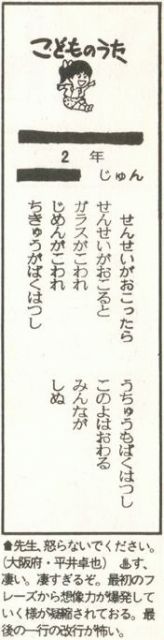 こどものうた
2年
じゅん
せんせいがおこったら
せんせいがおこると
ガラスがこわれ
じめんがこわれ
ちきゅうがばくはつし
うちゅうもばくはつし
このよはおわる
みんなが
しぬ
先生、怒らないでください。
(大阪府・平井卓也) す、
凄い。凄すぎるぞ。最初のフ
レーズから想像力が爆発して
いく様が凝縮されておる。最
後の一行の改行が怖い。